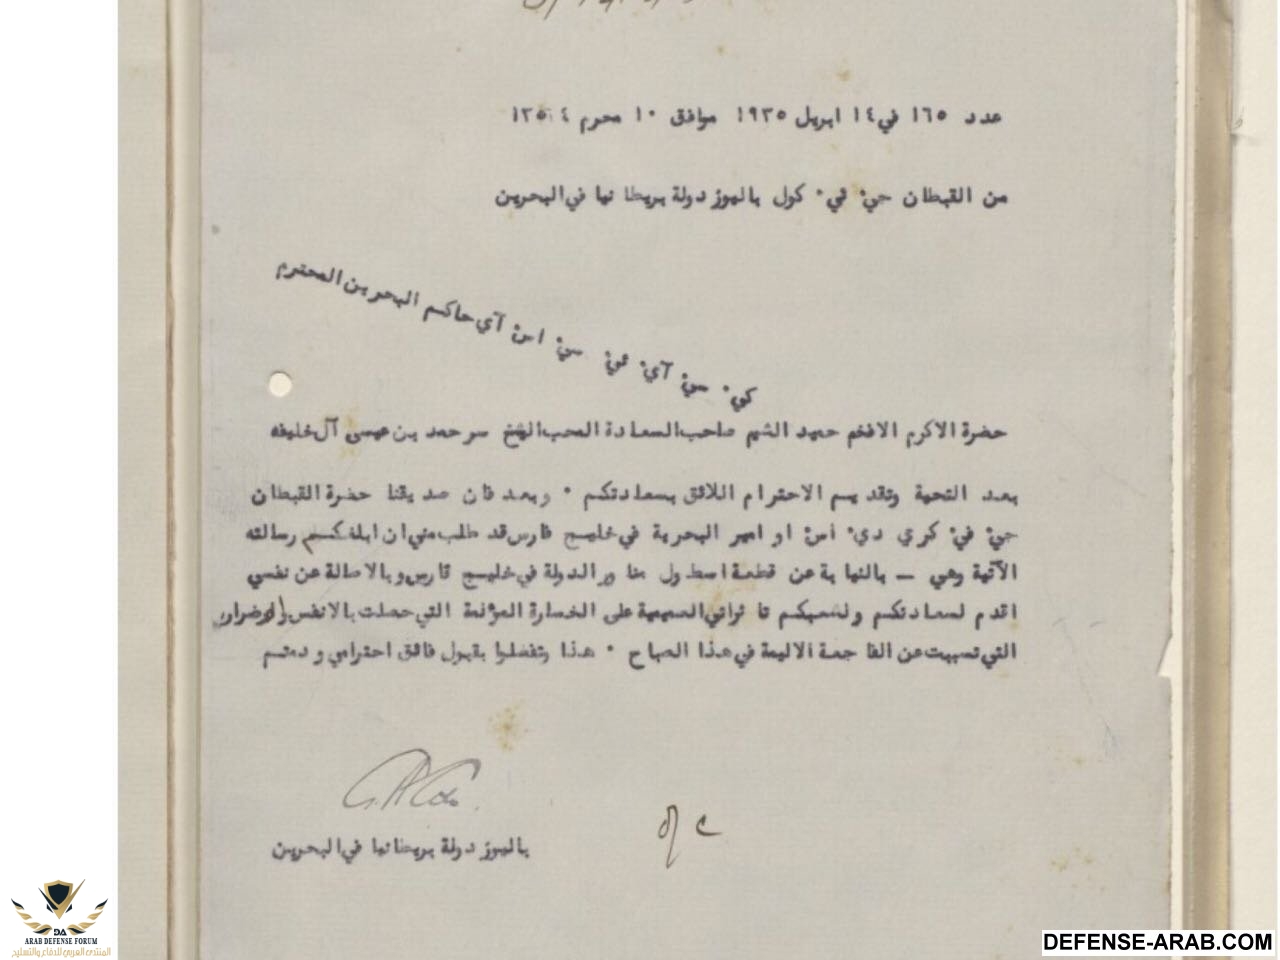 عدد ١٦٥ في ١٤ ابريل ١٩٣٥ موافق ١٠ محرم ١٣٥٤
من القبطان جي٠ في٠ كول باليوز دولة بريطانيا في البحرين
كي٠ سي٠ آي٠ ئي٠ سي٠ اس٠ آي حاكم البحرين المحترم
حضرة الاكرم الافخم حميد الشيم صاحب السعادة المحب الشيخ سر حمد بن عيسى آل خليفه
بعد التحية وتقديم الاحترام اللائق بسعادتكم ٠ وبعد فان صديقنا حضرة القبطان
جي٠ في٠ كري دي٠ اس٠ او امير البحرية في خليج فارس قد طلب مني ان ابلغكم رسالته
الآتية وهي – بالنيابة عن قطعة اسطول مناور الدولة في خليج فارس وبالاصالة عن نفسي
اقدم لسعادتكم ولشعبكم تأثراتي الصميمية على الخسارة المؤلمة التي حصلت بالانفس والاضرار
التي تسببت عن الفاجعة الاليمة في هذا الصباح ٠ هذا وتفضلوا بقبول فائق احترامي ودمتم
باليوز دولة بريطانيا في البحرين
ARAB DEFENSE FORUM
المنتدى العربي للدفاع والتسليح
DEFENSE-ARAB.COM